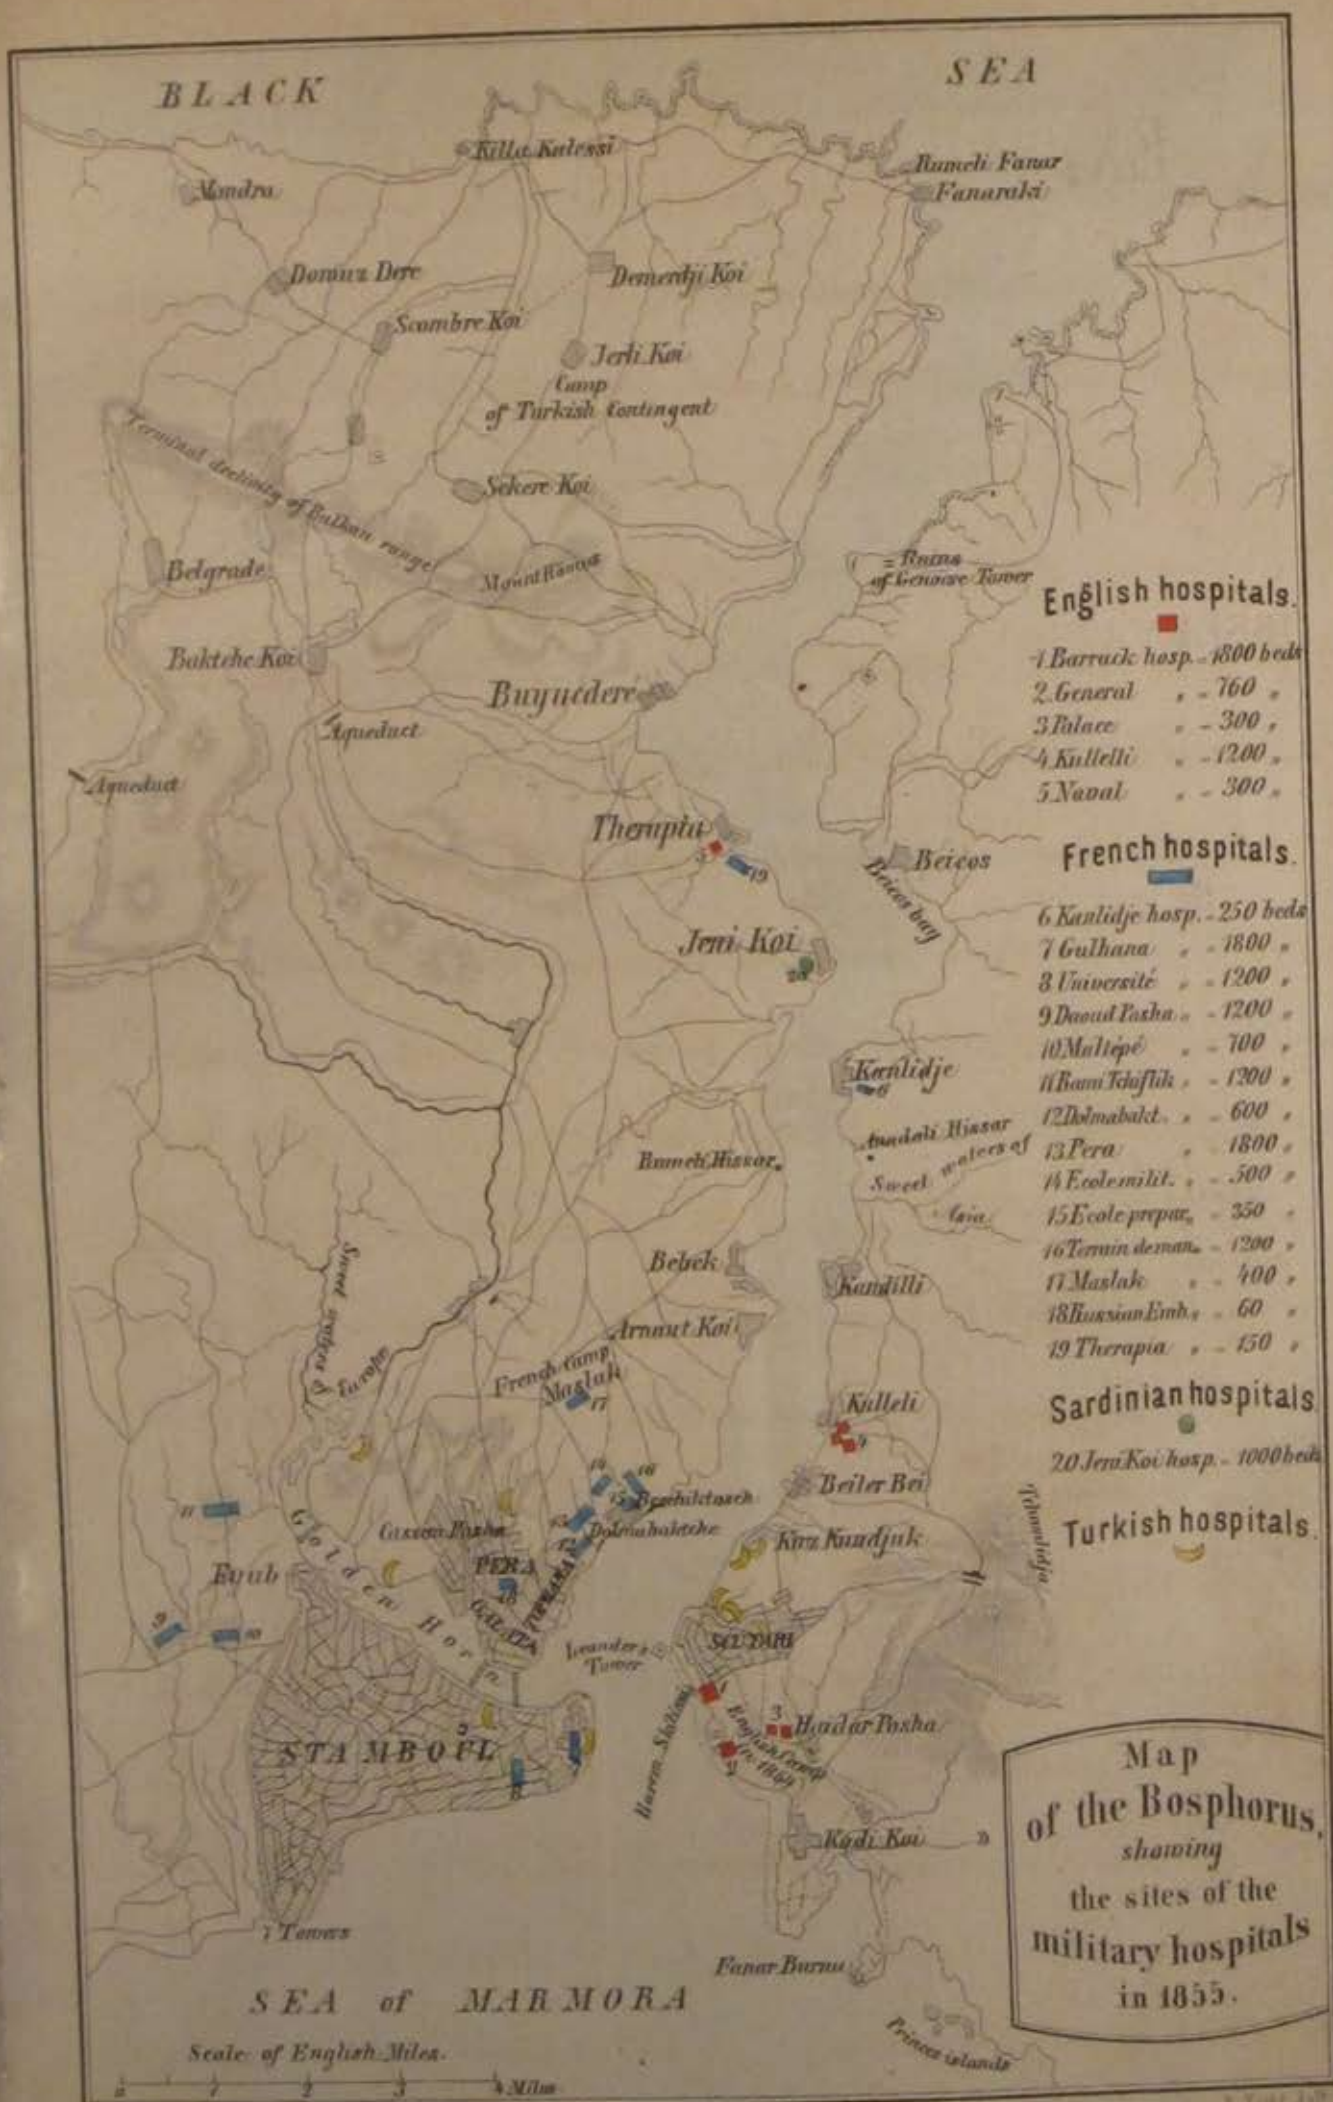 BLACK SEA
Killa Kalessi
Rumeli Fanar
Fanaraki
Domuz Dere
Demerdji Koi
Scombre Koi
Jerli Koi
Camp
of Turkish Contingent
Terminal declivity of Balkan range
Sekere Koi
Belgrade
Mount
Ruins
of Genoese Tower
Baktche Koi
Buyuederé
Aqueduct
Aqueduct
Therapia
5
19
Beicos
Beicos bay
Jeni Koi
20
Kanlidje
6
Anadoli Hissar
Sweet waters of
Asia
Rumeli Hissar
Bebek
Kandilli
Arnaut Koi
Sweet waters of
Europe
French Camp
Maslak
17
Kulleli
4
14
16
15
Beschiktasch
Beiler Bei
11
Golden Horn
Cassim Pasha
13
Dolmabaktche
12
Kuz Kundjuk
Eyub
PERA
GALATA
9
10
Leander's
Tower
SCUTARI
1
3
Haidar Pasha
English Camp
in 1854
2
Harem Skelissi
STAMBOUL
8
7
Kadi Koi
7 Towers
Fanar Burnu
Princes islands
SEA of MARMORA
Scale of English Miles.
0 1 2 3 4 Miles
English hospitals.
1 Barrack hosp. - 1800 beds
2. General " - 760 "
3 Palace " - 300 "
4 Kullelli " - 1200 "
5 Naval " - 300 "
French hospitals.
6 Kanlidje hosp. - 250 beds
7 Gulhana " - 1800 "
8 Université " - 1200 "
9 Daoud Pasha " - 1200 "
10 Maltépé " - 700 "
11 Rami Tchiflik " - 1200 "
12 Dolmabakt. " - 600 "
13 Pera " 1800 "
14 Ecole milit. " - 500 "
15 Ecole prepar. " - 350 "
16 Terrain de man. " - 1200 "
17 Maslak " - 400 "
18 Russian Emb. " - 60 "
19 Therapia " - 150 "
Sardinian hospitals
20 Jeni Koi hosp. - 1000 beds
Turkish hospitals.
Map
of the Bosphorus,
showing
the sites of the
military hospitals
in 1855.